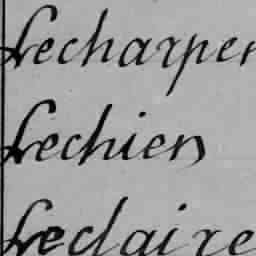 Lecharpen
Lechien
Leclaire